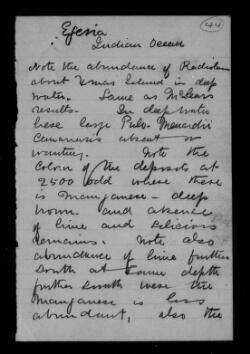 44
Egeria
Indian Ocean
Note the abundance of Radiolaria
about Xmas Island in deep
water. Same as McLears
results. In deep water
these large Pulv. Menardii
Communis absent or
wanting. Note the
Colour of the deposits at
2500 odd where there
is Manganese - deep
brown and absence
of lime and silicious
remains. Note also
abundance of lime further
South at same depth
further South were the
Manganese is less
abundant, also the